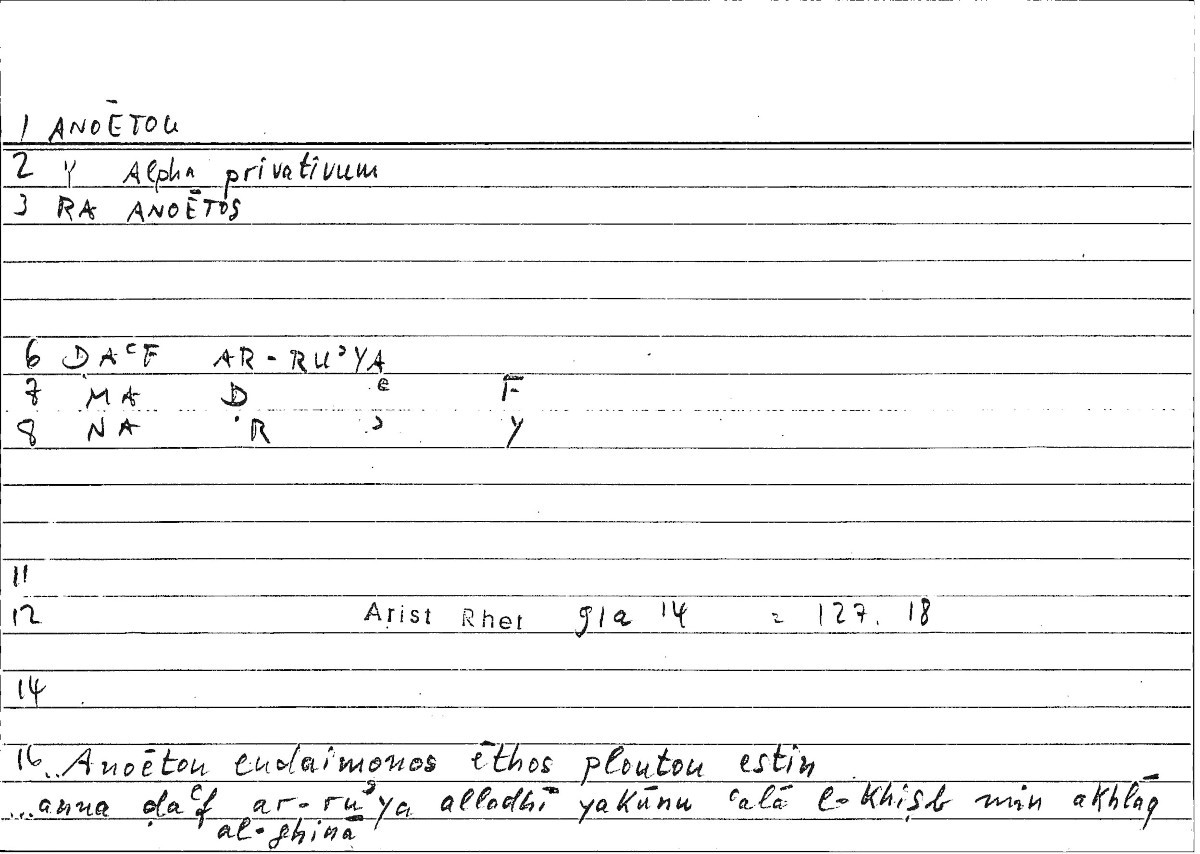 1 ANOĒTOU
2 Y Alpha privativum
3 RA ANOĒTOS
6 ḌAᶜF AR-RUʾYA
7 MA Ḍ ᶜ F
8 NA R ʾ Y
11
12 Arist Rhet 91a 14 = 127.18
14
16 ...Anoētou eudaimonos ēthos ploutou estin
...anna ḍaᶜf ar-ruʾya alladhī yakūnu ᶜalā l-khiṣb min akhlāq
al-ghinā